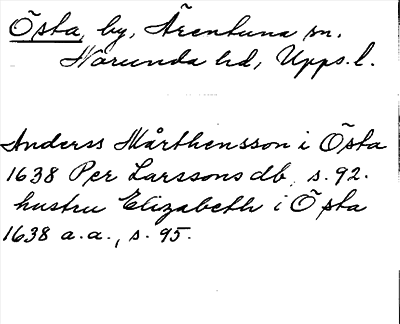 Östa, by, Ärentuna sn.
Norunda hd, Upps. l.
Anderss Mårthensson i Östa
1638 Per Larssons db, s. 92.
hustru Elizabeth i Östa
1638 a.a., s. 95.